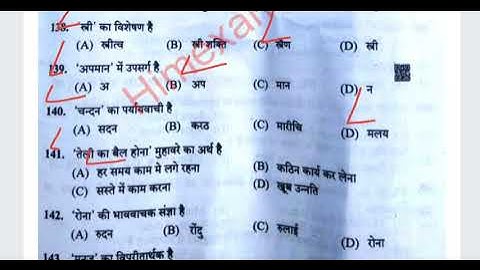 138. 'स्त्री' का विशेषण है
(A) स्त्रीत्व (B) स्त्री शक्ति (C) स्त्रैण (D) स्त्री
139. 'अपमान' में उपसर्ग है
(A) अ (B) अप (C) मान (D) न
140. 'चन्दन' का पर्यायवाची है
(A) सदन (B) करठ (C) मारीचि (D) मलय
141. 'तेली का बैल होना' मुहावरे का अर्थ है
(A) हर समय काम मे लगे रहना (B) कठिन कार्य कर लेना
(C) सस्ते में काम करना (D) खूब उन्नति
142. 'रोना' की भाववाचक संज्ञा है
(A) रुदन (B) रोंदु (C) रुलाई (D) रोना
143. का विपरीतार्थक है
Himexam